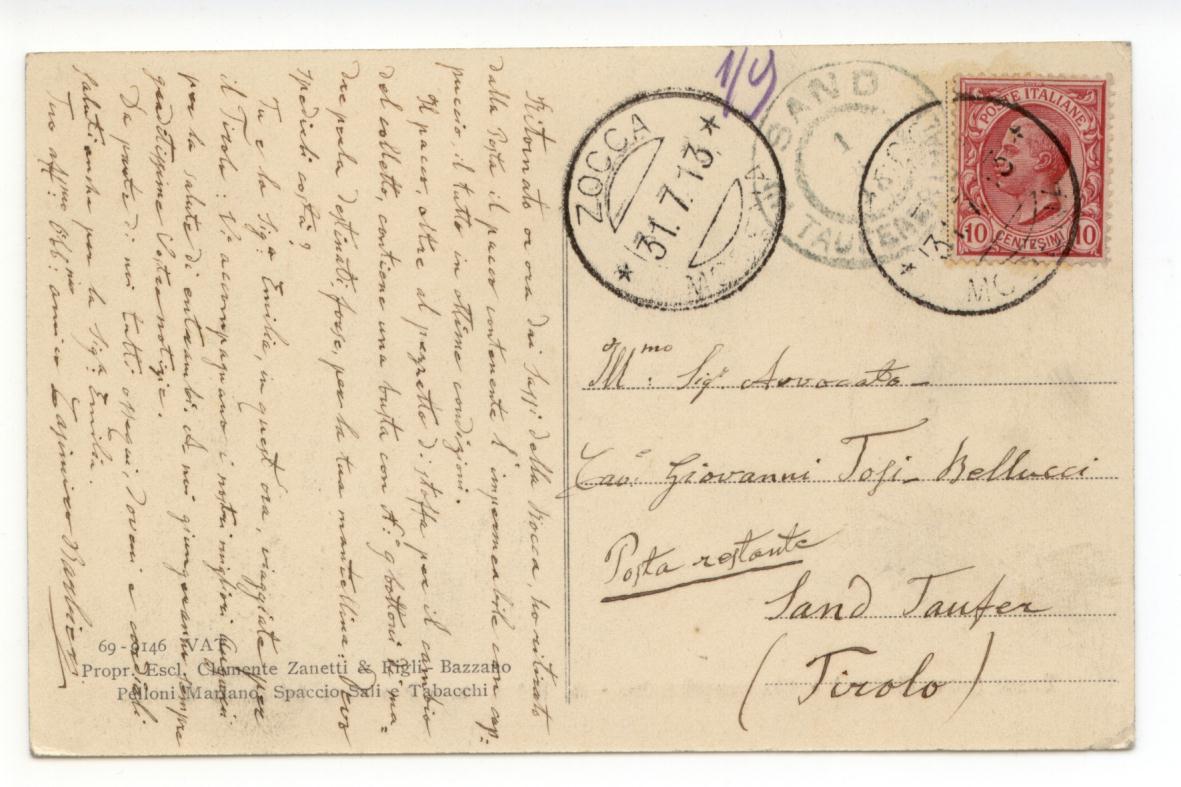 Ritornato or ora dai Sassi della Rocca, ho ritirato
dalla Posta il pacco contenente l'impermeabile con cap-
puccio, il tutto in ottime condizioni.
Il pacco, oltre al pezzetto di stoffa per il cambio
del colletto, contiene una busta con N.o 9 bottoni di ma-
dreperla destinati, forse, per la tua mantellina: Devo
spedirli costà?
Tu e la Sig.a Emilia, in quest'ora, viaggiate per
il Tirolo: Vi accompagnano i nostri migliori auguri
per la salute di entrambi. A noi giungeranno sempre
graditissime Vostre notizie.
Da parte di noi tutti ossequi, doveri e cordiali
saluti anche per la Sig.a Emilia.
Tuo aff:mo Obb:mo amico
69-9146 VAT
Propr. Escl. Clemente Zanetti & Figli, Bazzano
Pelloni Mariano, Spaccio Sali e Tabacchi
1/9
ZOCCA
31.7.13
MODENA
SAND
1
TAUFERER
POSTE ITALIANE
10 CENTESIMI 10
Ill.mo Sig.r Avvocato
Cav. Giovanni Tosi-Bellucci
Posta restante
Sand Taufer
(Tirolo)